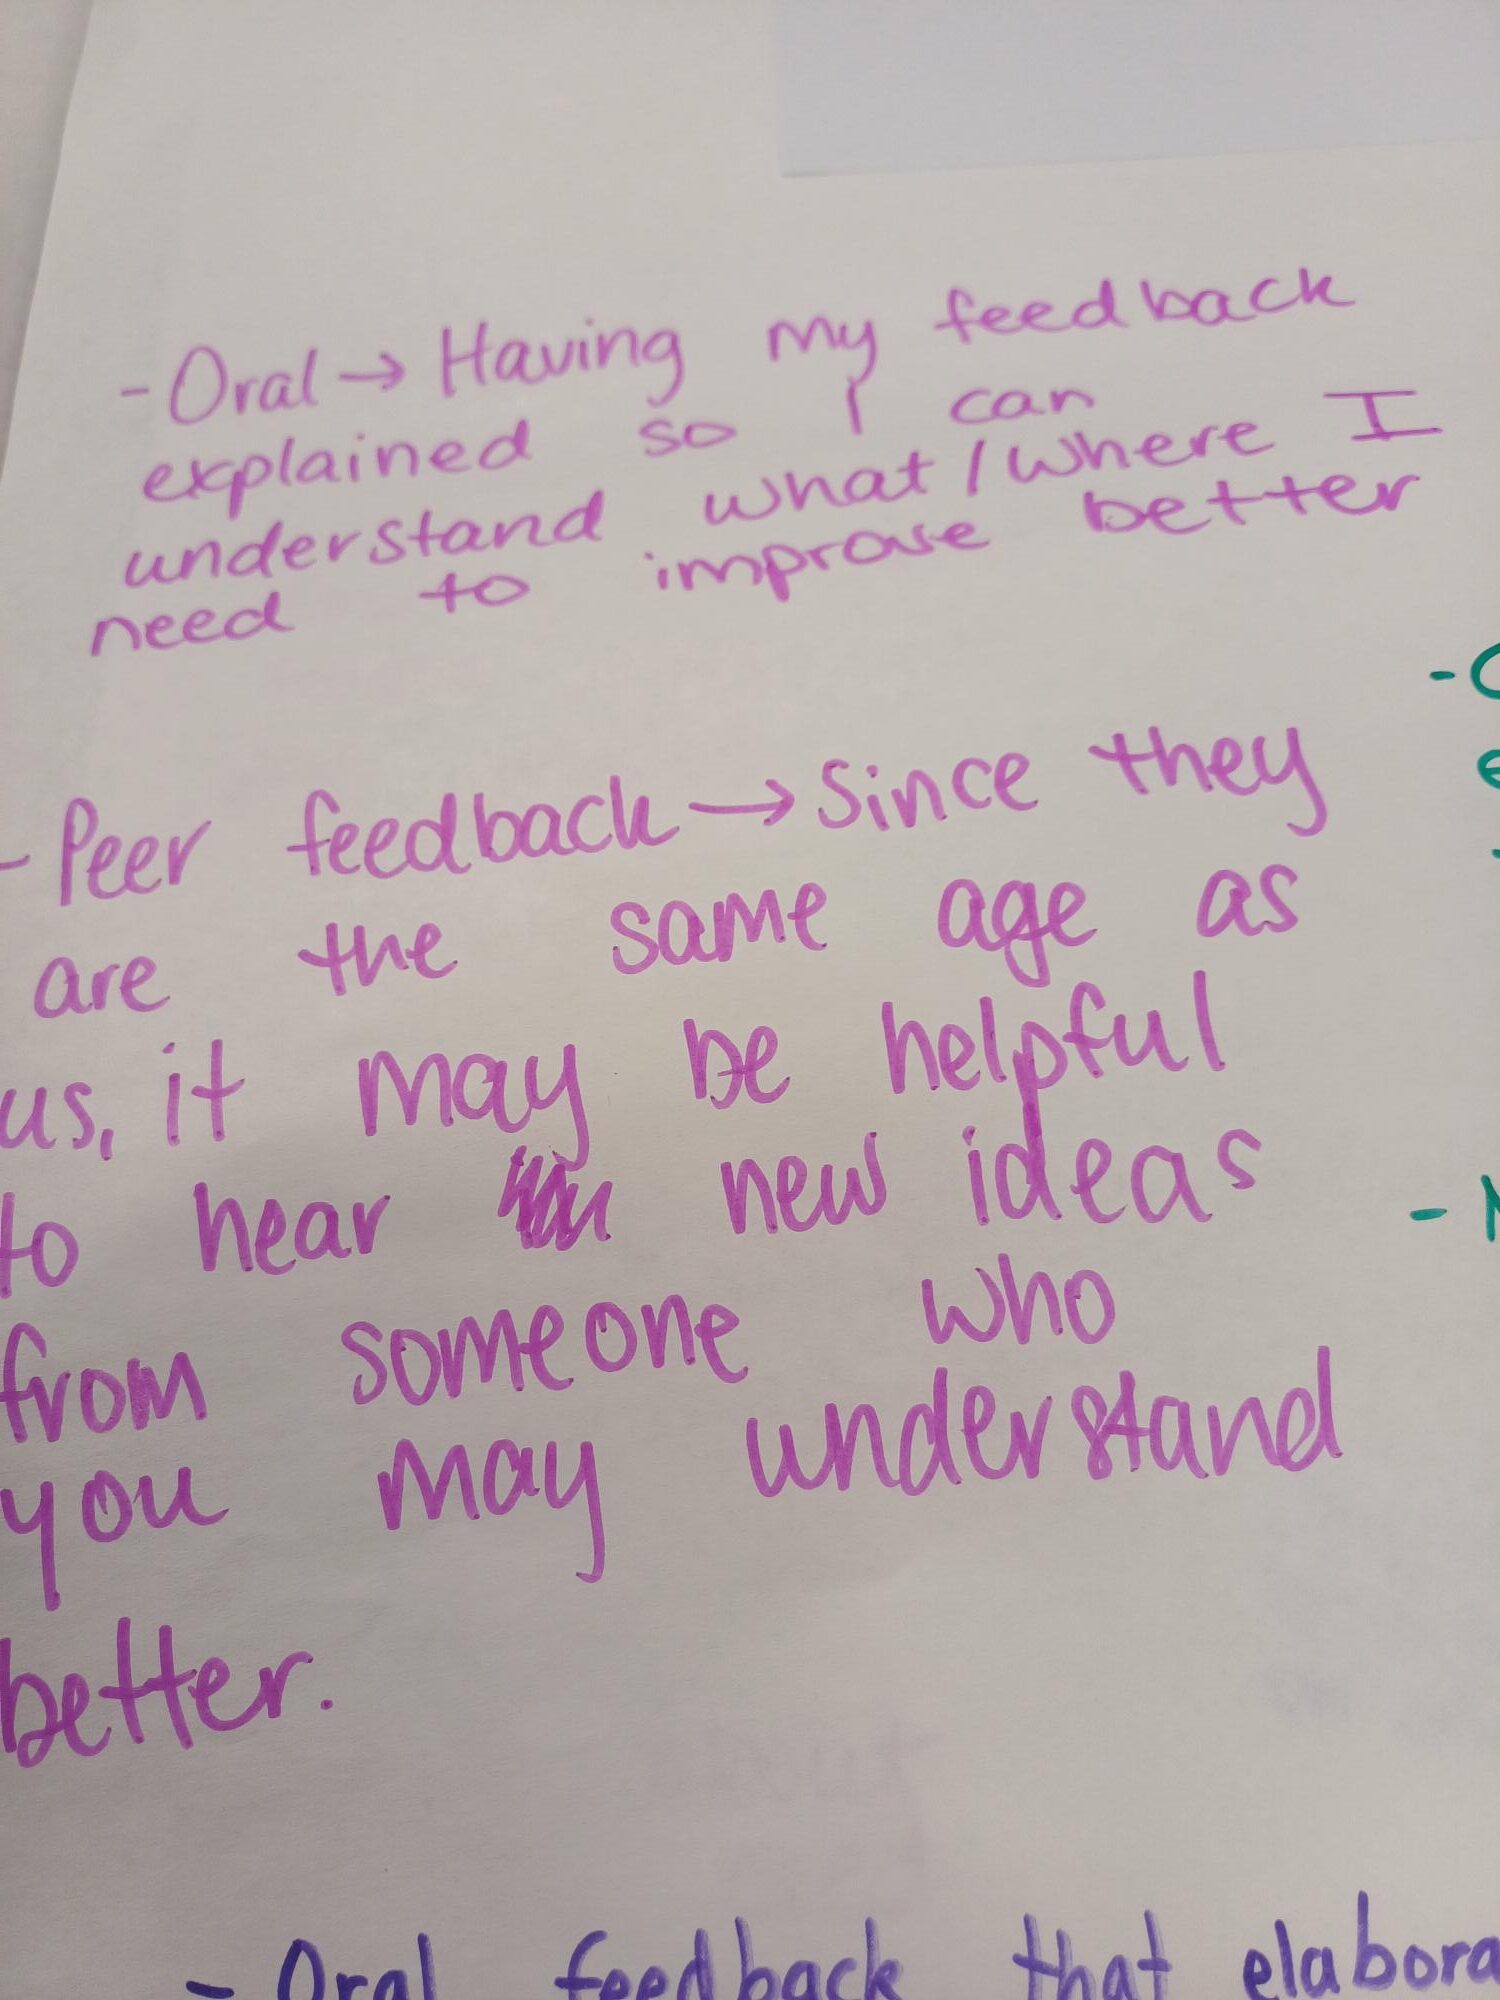 - Oral → Having my feedback
explained so I can
understand what / where I
need to improve better
- Peer feedback → Since they
are the same age as
us, it may be helpful
to hear new ideas
from someone who
you may understand
better.
- Oral feedback that elabora